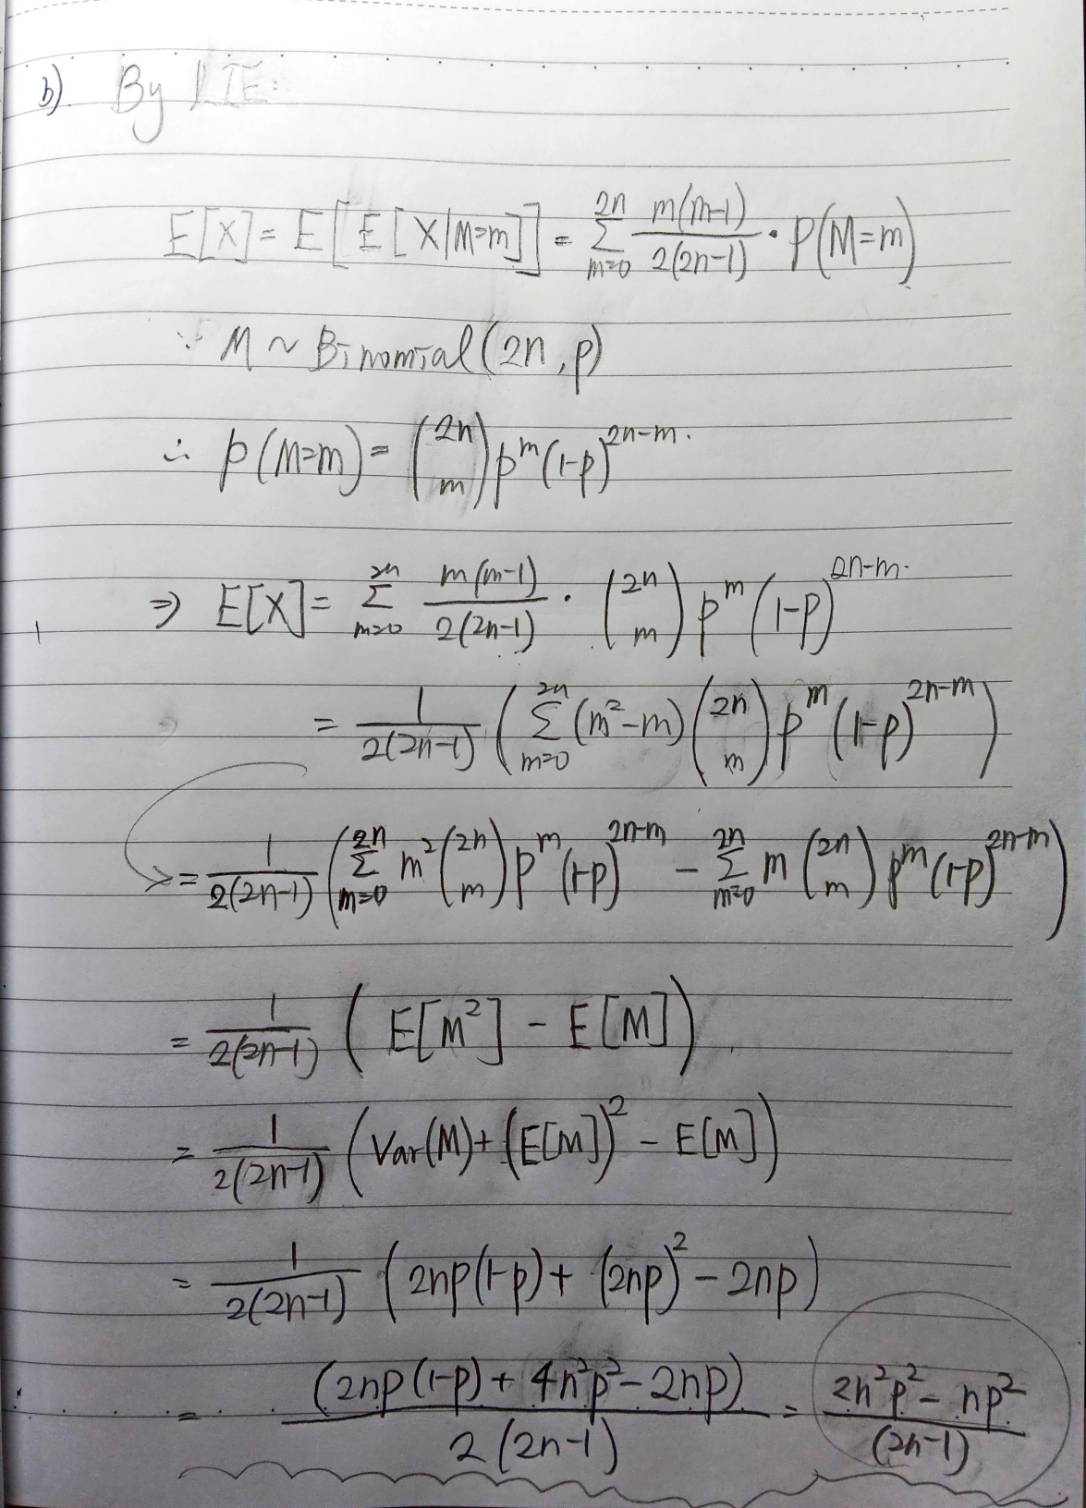 b). By LIE:
E[X] = E[E[X|M=m]] = \sum_{m=0}^{2n} \frac{m(m-1)}{2(2n-1)} \cdot P(M=m)
∵ M ~ Binomial(2n, p)
∴ p(M=m) = \binom{2n}{m} p^m (1-p)^{2n-m}.
⇒ E[X] = \sum_{m=0}^{2n} \frac{m(m-1)}{2(2n-1)} \cdot \binom{2n}{m} p^m (1-p)^{2n-m}.
= \frac{1}{2(2n-1)} ( \sum_{m=0}^{2n} (m^2-m) \binom{2n}{m} p^m (1-p)^{2n-m} )
= \frac{1}{2(2n-1)} ( \sum_{m=0}^{2n} m^2 \binom{2n}{m} p^m (1-p)^{2n-m} - \sum_{m=0}^{2n} m \binom{2n}{m} p^m (1-p)^{2n-m} )
= \frac{1}{2(2n-1)} ( E[M^2] - E[M] ).
= \frac{1}{2(2n-1)} ( Var(M) + (E[M])^2 - E[M] )
= \frac{1}{2(2n-1)} ( 2np(1-p) + (2np)^2 - 2np )
= \frac{(2np(1-p) + 4n^2p^2 - 2np)}{2(2n-1)} = \frac{2n^2p^2 - np^2}{(2n-1)}